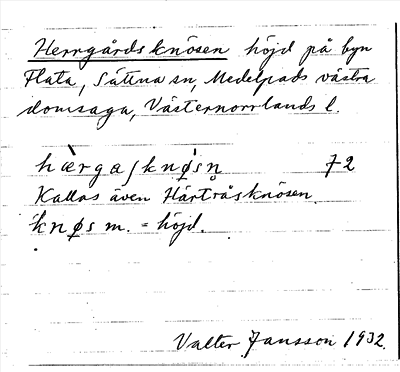 Herrgårdsknösen höjd på byn
Flata, Sättna sn, Medelpads västra
domsaga, Västernorrlands l.
hæ̀rgaʃknø̀sn̥ 72
Kallas även Härtråsknösen.
knøs m. = höjd.
Valter Jansson 1932.